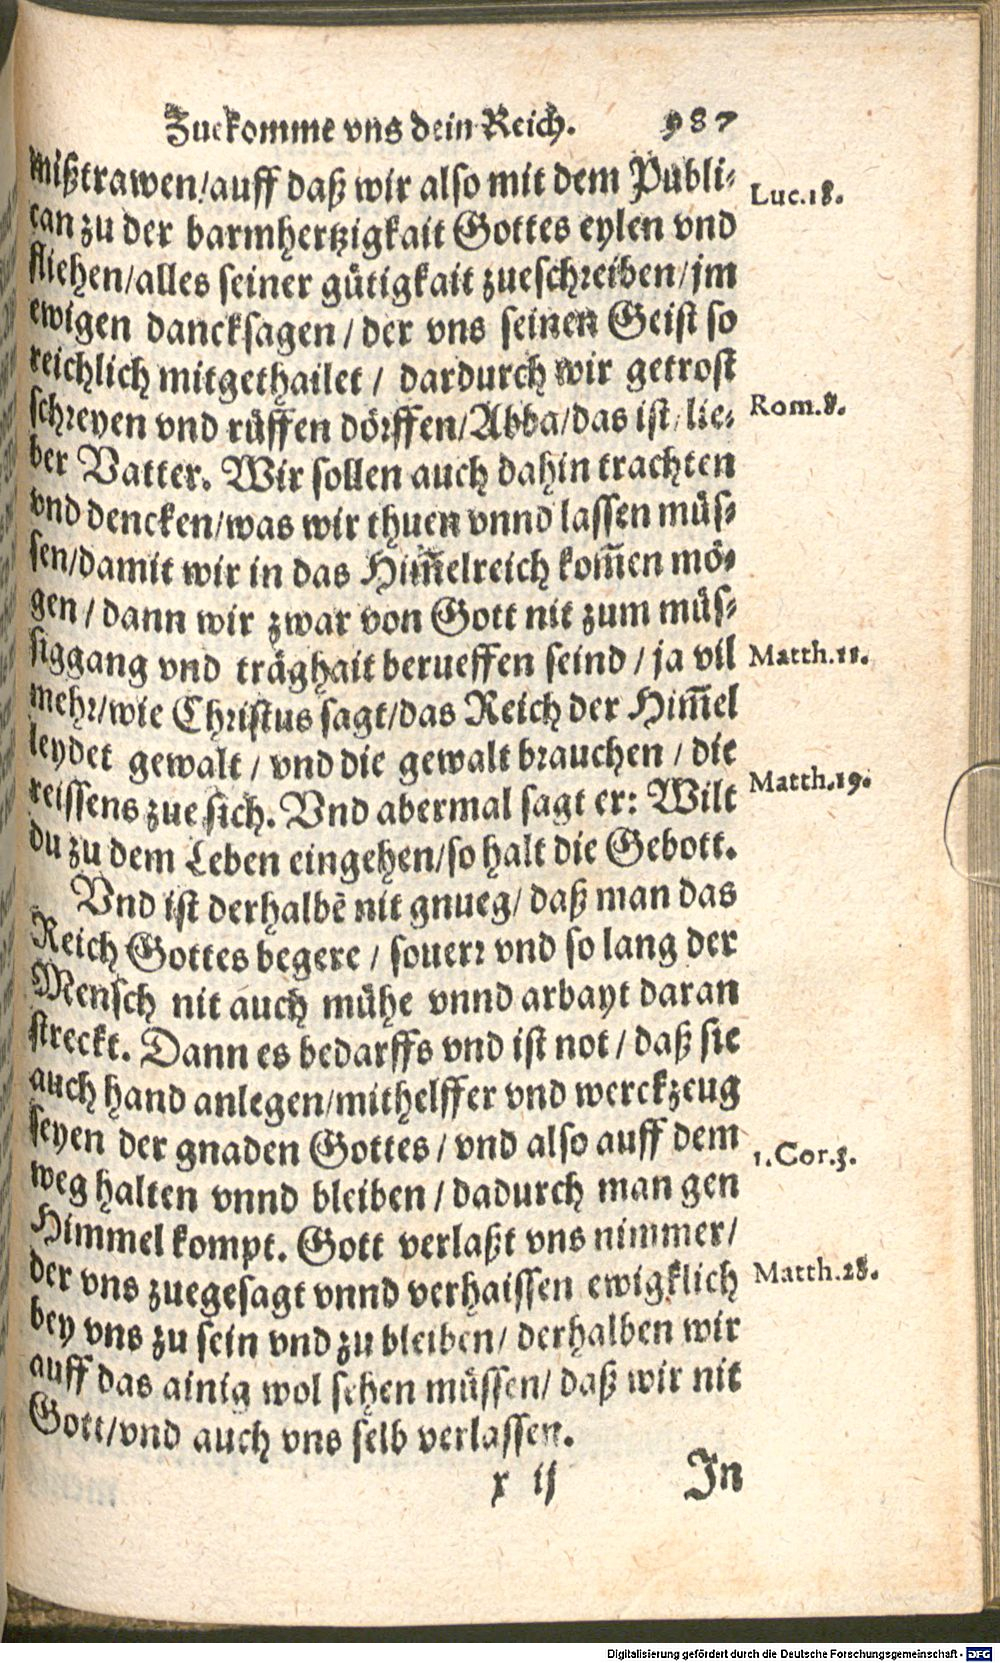 Zuekomme vns dein Reich. 987
mißtrawen/auff daß wir also mit dem Publi-
can zu der barmhertzigkait Gottes eylen vnd
fliehen/alles seiner gütigkait zueschreiben/jm
ewigen dancksagen/der vns seinen Geist so
reichlich mitgethailet/ dardurch wir getrost
schreyen vnd rüffen dörffen/Abba/das ist/lie-
ber Vatter. Wir sollen auch dahin trachten
vnd dencken/was wir thuen vnnd lassen müs-
sen/damit wir in das Him̄elreich kom̄en mö-
gen/dann wir zwar von Gott nit zum müs-
siggang vnd träghait berueffen seind/ja vil
mehr/wie Christus sagt/das Reich der Him̄el
leydet gewalt/vnd die gewalt brauchen/die
reissens zue sich. Vnd abermal sagt er: Wilt
du zu dem Leben eingehen/so halt die Gebott.
Vnd ist derhalbē nit gnueg/daß man das
Reich Gottes begere/souerr vnd so lang der
Mensch nit auch mühe vnnd arbayt daran
streckt. Dann es bedarffs vnd ist not/daß sie
auch hand anlegen/mithelffer vnd werckzeug
seyen der gnaden Gottes/vnd also auff dem
weg halten vnnd bleiben/dadurch man gen
Himmel kompt. Gott verlaßt vns nimmer/
der vns zuegesagt vnnd verhaissen ewigklich
bey vns zu sein vnd zu bleiben/derhalben wir
auff das ainig wol sehen müssen/daß wir nit
Gott/vnd auch vns selb verlassen.
x ij In
Luc.18.
Rom.8.
Matth.11.
Matth.19.
1.Cor.3.
Matth.28.
Digitalisierung gefördert durch die Deutsche Forschungsgemeinschaft - DFG